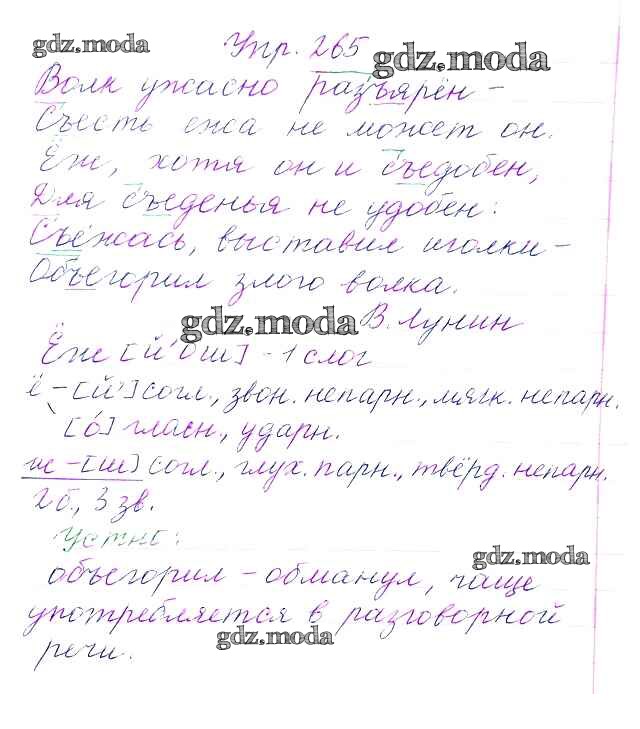 gdz.moda
Упр. 265
gdz.moda
Волк ужасно разъярён -
Съесть ежа не может он.
Ёж, хотя он и съедобен,
Для съеденья не удобен:
Съёжась, выставил иголки -
Объегорил злого волка.
gdz.moda
В. Лунин
Ёж [й'ош] - 1 слог
ё - [й'] согл., звон. непарн., мягк. непарн.
[о́] гласн., ударн.
ж - [ш] согл., глух. парн., твёрд. непарн.
2 б., 3 зв.
Устно:
gdz.moda
объегорил - обманул, чаще
употребляется в разговорной
gdz.moda
речи.